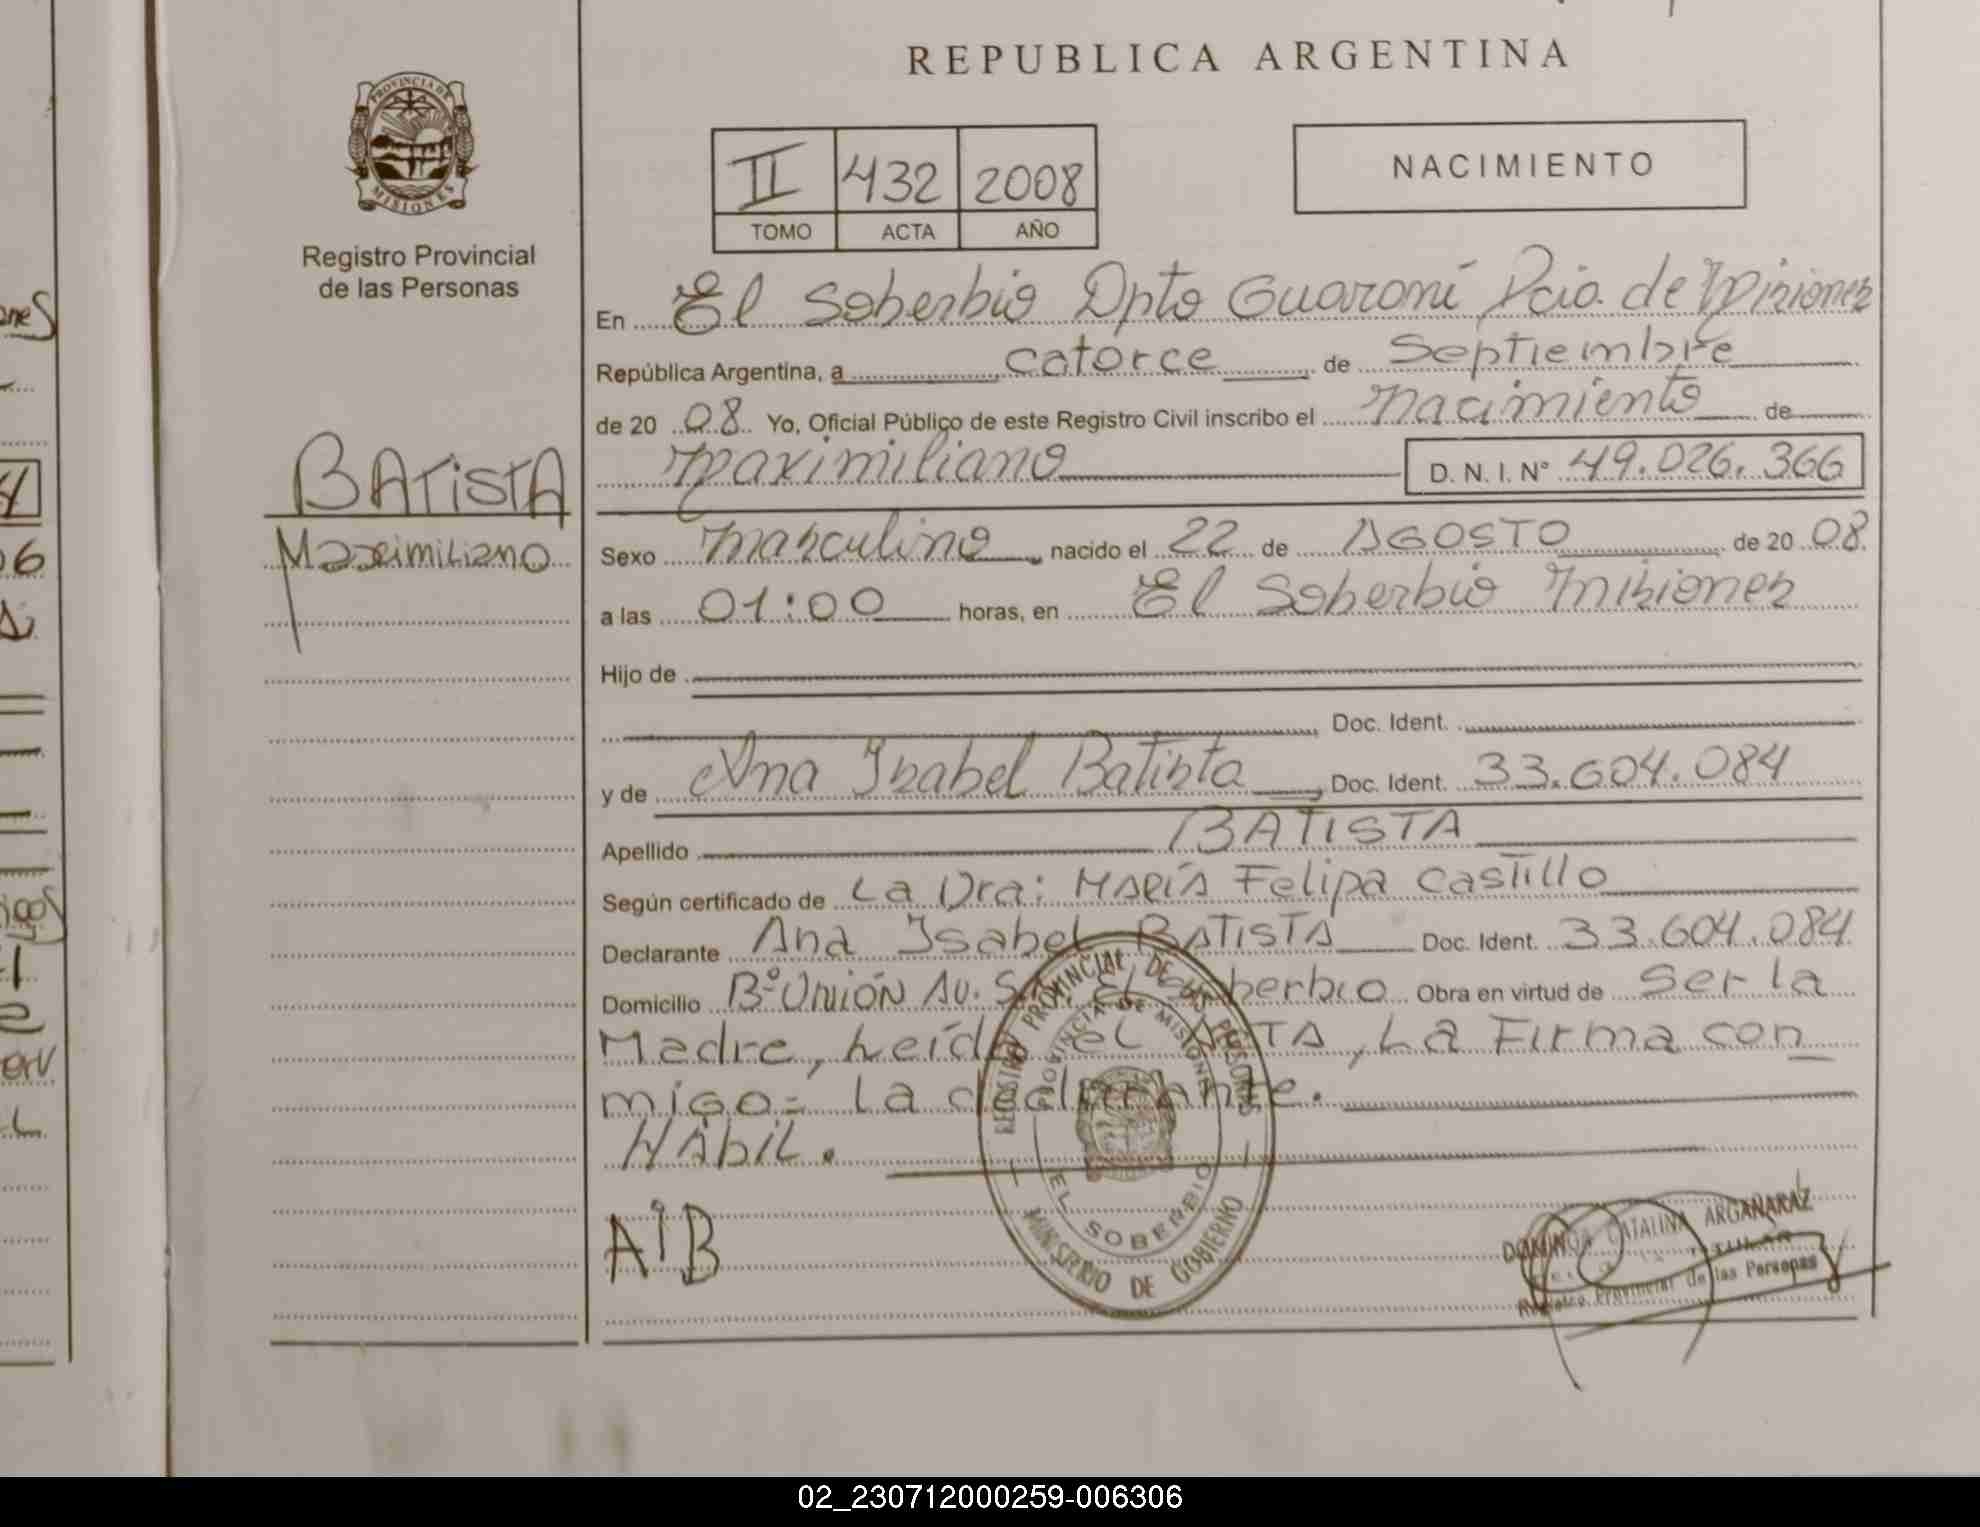 REPUBLICA ARGENTINA
PROVINCIA DE MISIONES
Registro Provincial
de las Personas
II 432 2008
TOMO ACTA AÑO
NACIMIENTO
En El Soberbio Dpto Guaraní Pcia. de Misiones
República Argentina, a catorce de Septiembre
de 2008 Yo, Oficial Público de este Registro Civil inscribo el nacimiento de
Maximiliano D. N. I. N° 49.026.366
BATISTA
Maximiliano
Sexo masculino nacido el 22 de AGOSTO de 2008
a las 01:00 horas, en El Soberbio Misiones
Hijo de
Doc. Ident.
y de Ana Isabel Batista Doc. Ident. 33.604.084
Apellido BATISTA
Según certificado de La Dra: MARÍA Felipa Castillo
Declarante Ana Isabel BATISTA Doc. Ident. 33.604.084
Domicilio Bº Unión Av. S. El Soberbio Obra en virtud de Ser la
Madre, Leída el ACTA, La Firma con
migo= La declarante.
HÁbiL.
AIB
REGISTRO PROVINCIAL DE LAS PERSONAS
PROVINCIA DE MISIONES
EL SOBERBIO
MINISTERIO DE GOBIERNO
DOMINGA CATALINA ARGAÑARAZ
TITULAR
Registro Provincial de las Personas
02_230712000259-006306